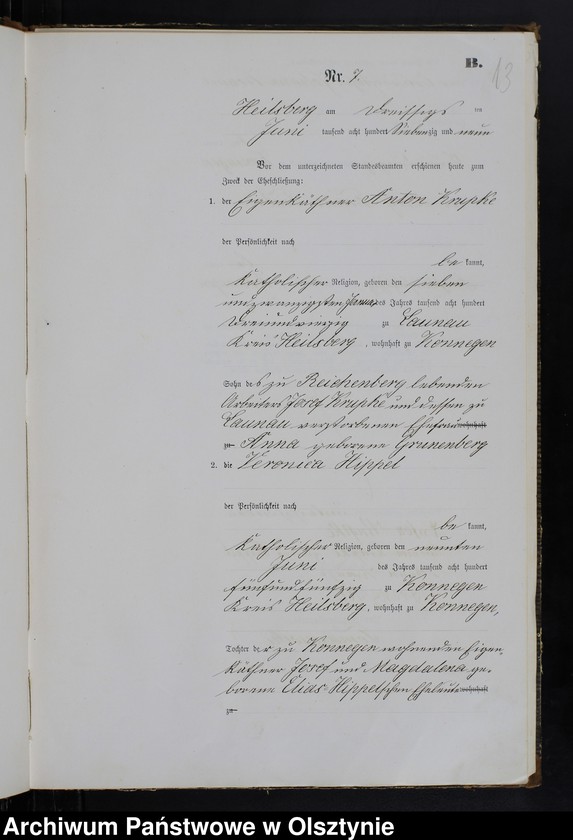 B.
13
Nr. 7.
Heilsberg am dreissigsten
Juni tausend acht hundert Siebenzig und neun
Vor dem unterzeichneten Standesbeamten erschienen heute zum
Zweck der Eheschließung:
1. der Eigenkäthner Anton Krupke
der Persönlichkeit nach
be kannt,
katholischer Religion, geboren den sieben
undzwanzigsten Januar des Jahres tausend acht hundert
dreiundvierzig zu Launau
Kreis Heilsberg, wohnhaft zu Konnegen
Sohn des zu Reichenberg lebenden
Arbeiters Josef Krupke und dessen zu
Launau verstorbenen Ehefrau wohnhaft
zu Anna geborene Grunenberg
2. die Veronica Hippel
der Persönlichkeit nach
be kannt,
katholischer Religion, geboren den neunten
Juni des Jahres tausend acht hundert
fünfundfünfzig zu Konnegen
Kreis Heilsberg, wohnhaft zu Konnegen,
Tochter der zu Konnegen wohnenden Eigen-
käthner Josef und Magdalena ge-
borene Elias-Hippelschen Eheleute wohnhaft
zu
Archiwum Państwowe w Olsztynie